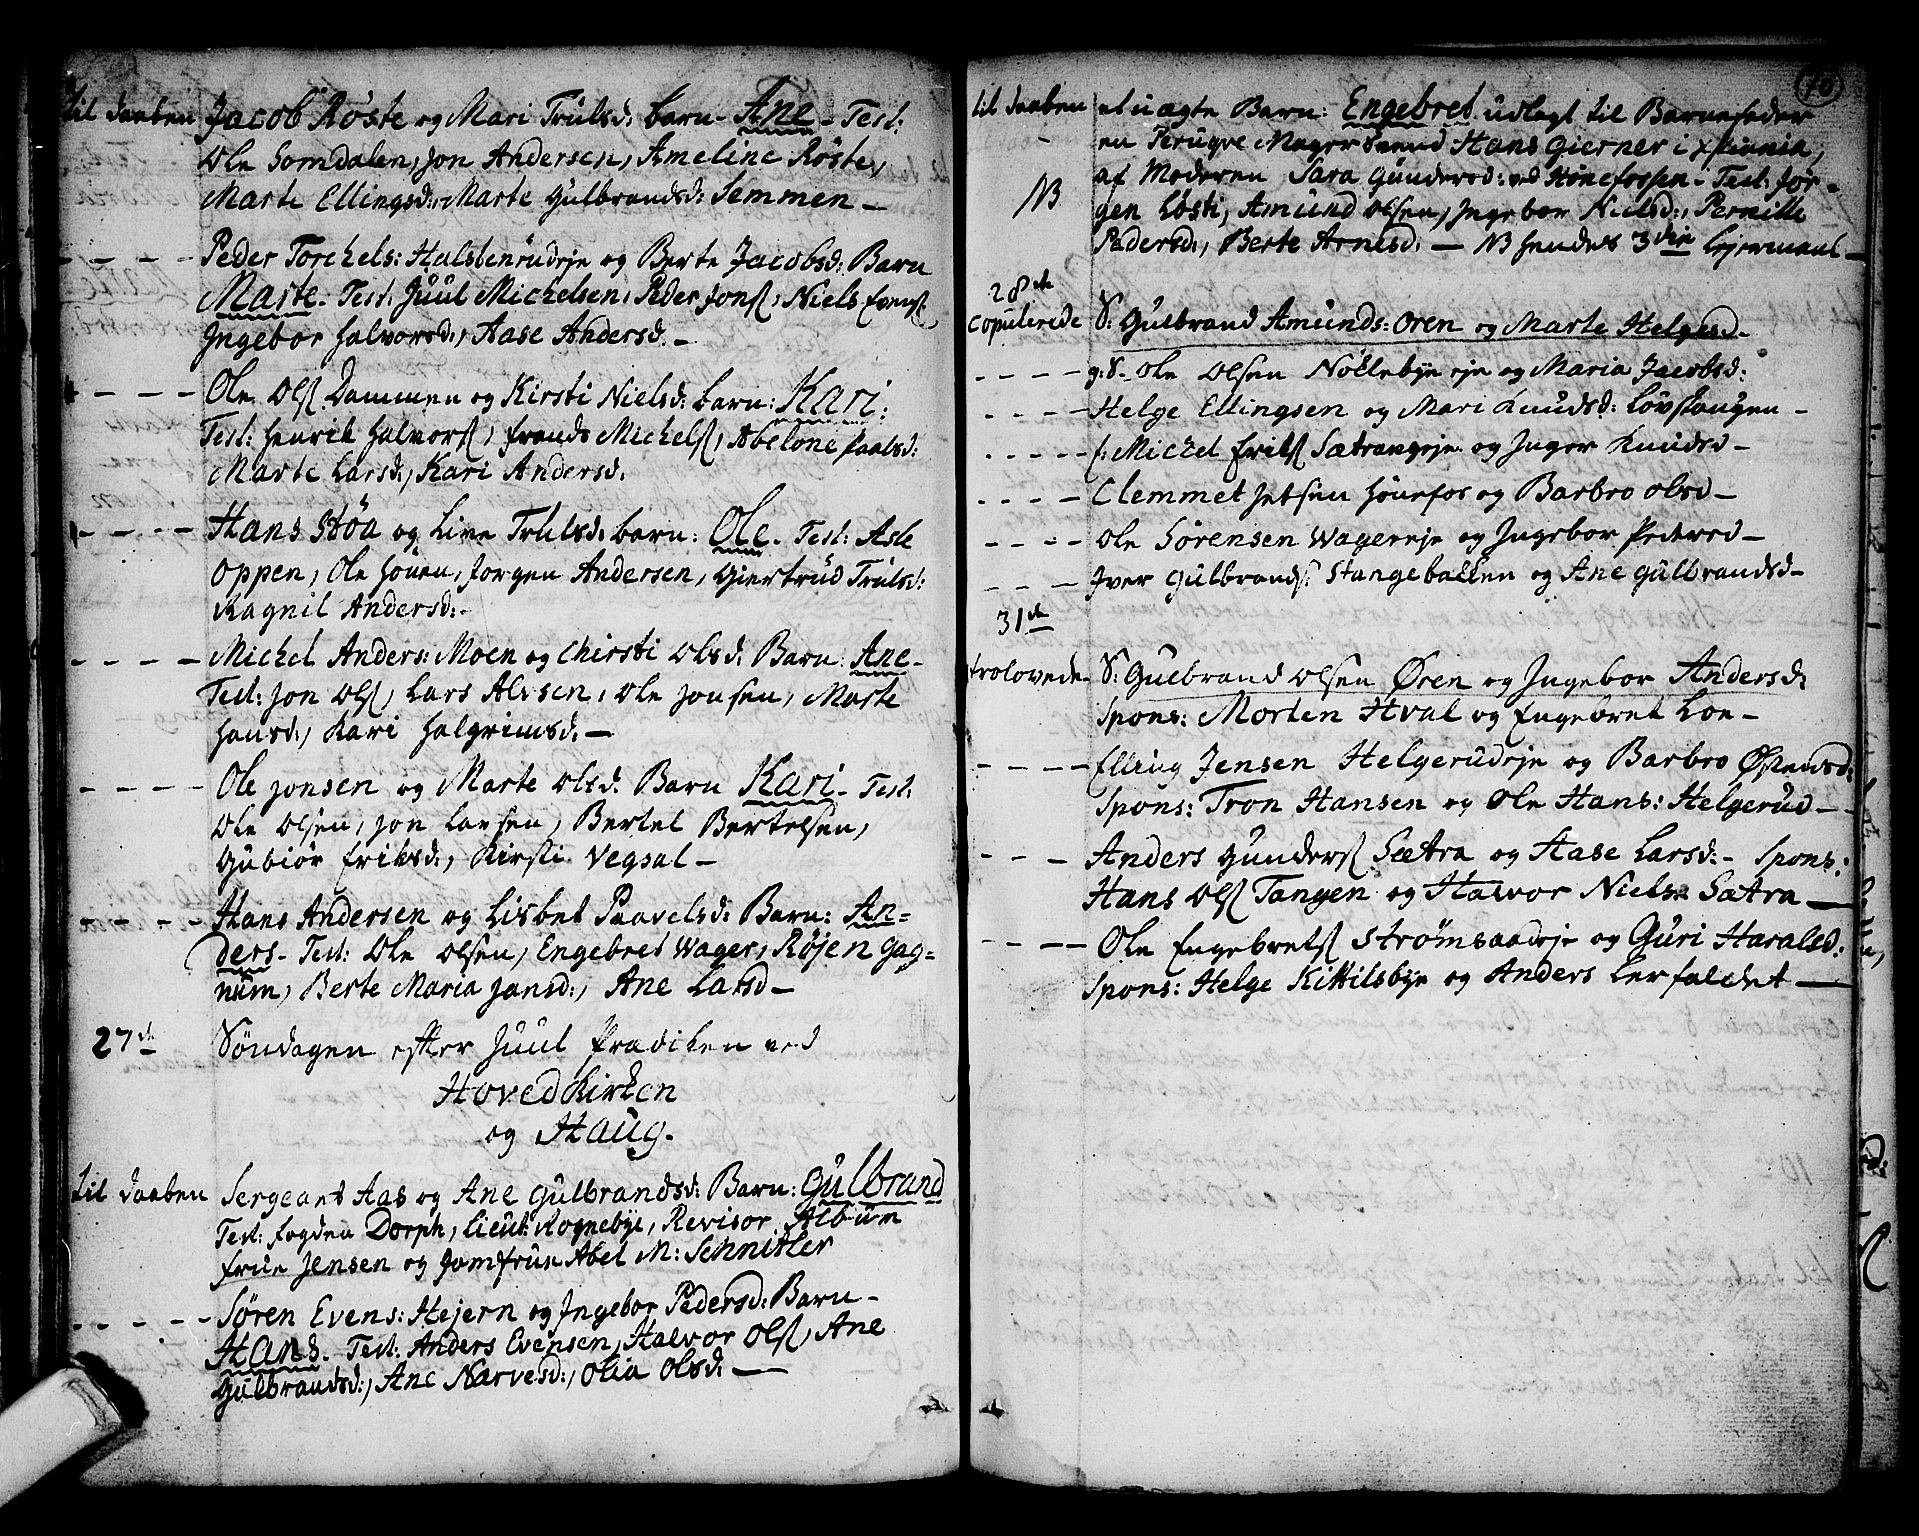 til daaben Jacob Røste og Mari Trulsd: barn - Ane - Test:
Ole Somdalen, Jon Andersen, Ameline Røste,
Marte Ellingsd:, Marte Gulbrandsd: Semmen -
- - - - Peder Torchels: Halstenrudeje og Berte Jacobsd: Barn
Marte - Test: Juul Michelsen, Peder Jonſ, Niels Evenſ,
Ingebor Halvorsd:, Aase Andersd. -
- - - - Ole Olſ Dammen og Kirsti Nielsd: barn: Kari:
Test: Henrik Halvorſ, Frands Michelſ, Abelone Paalsd:
Marte Larsd:, Kari Andersd.
- - - - Hans Støa og Live Trulsd: barn: Ole - Test: Asle
Oppen, Ole Houen, Jorgen Andersen, Giertrud Trulsd:
Ragnil Andersd: -
- - - - Michel Anders: Moen og Chirsti Olsd: Barn: Ane -
Test: Jon Olſ, Lars Alvsen, Ole Jonsen, Marte
Hansd:, Kari Halgrimsd: -
- - - - Ole Jonsen og Marte Olsd: Barn Kari - Test:
Ole Olsen, Jon Larsen, Bertel Bertelsen,
Gubiør Eriksd:, Kirsti Vegsal -
- - - - Hans Andersen og Lisbet Paavelsd: Barn: An-
ders - Test: Ole Olsen, Engebret Wager, Røjen Gag-
num, Berte Maria Jansd:, Ane Larsd -
27de Søndagen efter Juul Prædiken ved
Hovedkirken
og Haug.
til daaben Sergeant Aas og Ane Gulbrandsd: Barn: Gulbrand
Test: fogden Dorph, Lieut: Rognebye, Revisor Album
Frue Jensen og Jomfrue Abel M: Schnitler
- - - - - Søren Evens: Hejern og Ingebor Pedersd: Barn -
Hans - Test: Anders Evensen, Halvor Olſ, Ane
Gulbrandsd:, Ane Narvesd:, Olia Olsd: -
10
til daaben et uægte Barn: Engebret udlagt til Barnefader
en Peruqve Mager Svend Hans Gierner i Xstiania,
af Moderen Sara Gundersd: ved Hönefossen - Test: Jör-
NB gen Lösti, Amund Olsen, Ingebor Nielsd:, Pernille
Pedersd:, Berte Arnesd: - NB hendes 3die Lejermaal -
28de
Copulerede S: Gulbrand Amunds: Oren og Marte Helgesd -
- - - - g:S - Ole Olsen Nöklebye eje og Maria Jacobsd:
- - - - Helge Ellingsen og Mari Knudsd: Lövstangen -
- - - - - f: Michel Erikſ Sætrangeje og Inger Knudsd -
- - - - Clemmet Jetsen Hönefos og Barbro Olsd -
- - - - Ole Sörensen Wagereje og Ingebor Pedersd -
- - - Iver Gulbrands: Stangebakken og Ane Gulbrandsd -
31de
trolovede - S: Gulbrand Olsen Øren og Ingebor Andersd:
Spons: Morten Hval og Engebret Loe -
- - - - Elling Jensen Helgerudeje og Barbro Østensd:
Spons: Tron Hansen og Ole Hans: Helgerud -
- - - Anders Gunderſ Sætra og Aase Larsd: - Spons:
Hans Olſ Tangen og Halvor Niels: Sætra -
- - - - Ole Engebretſ Strömsaadeje og Guri Haralsd:
Spons: Helge Kittilsbye og Anders Lerfaldet -